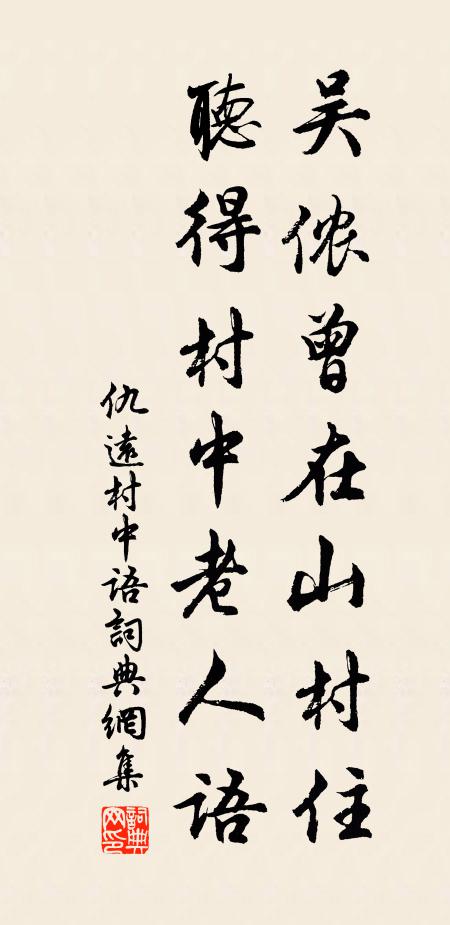 吴侬曾在山村住
聽得村中老人語
仇遠村中語詞典網集
詞典網印